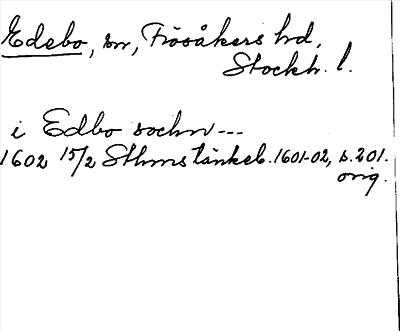 Edebo, sn, Frösåkers hd,
Stockh. l.
i Edbo sochn ---
1602 15/2 Sthms tänkeb. 1601-02, s. 201.
orig.